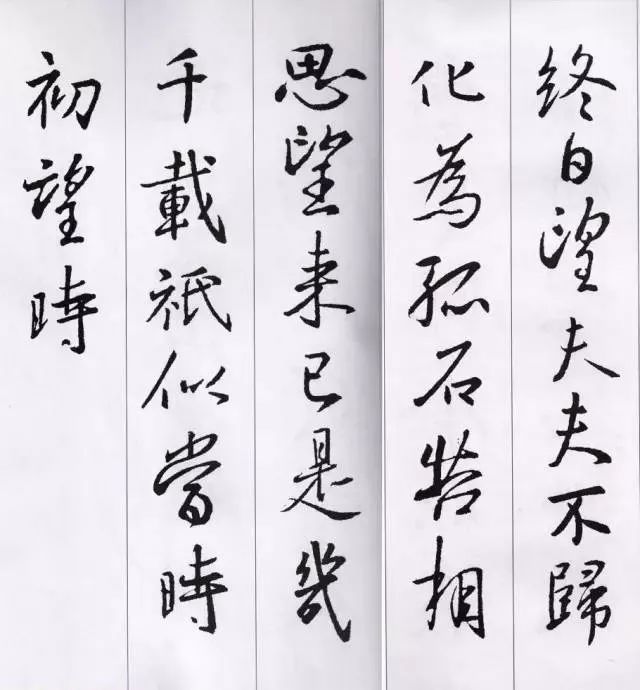 終日望夫夫不歸
化為孤石苦相
思望來已是幾
千載祇似當時
初望時